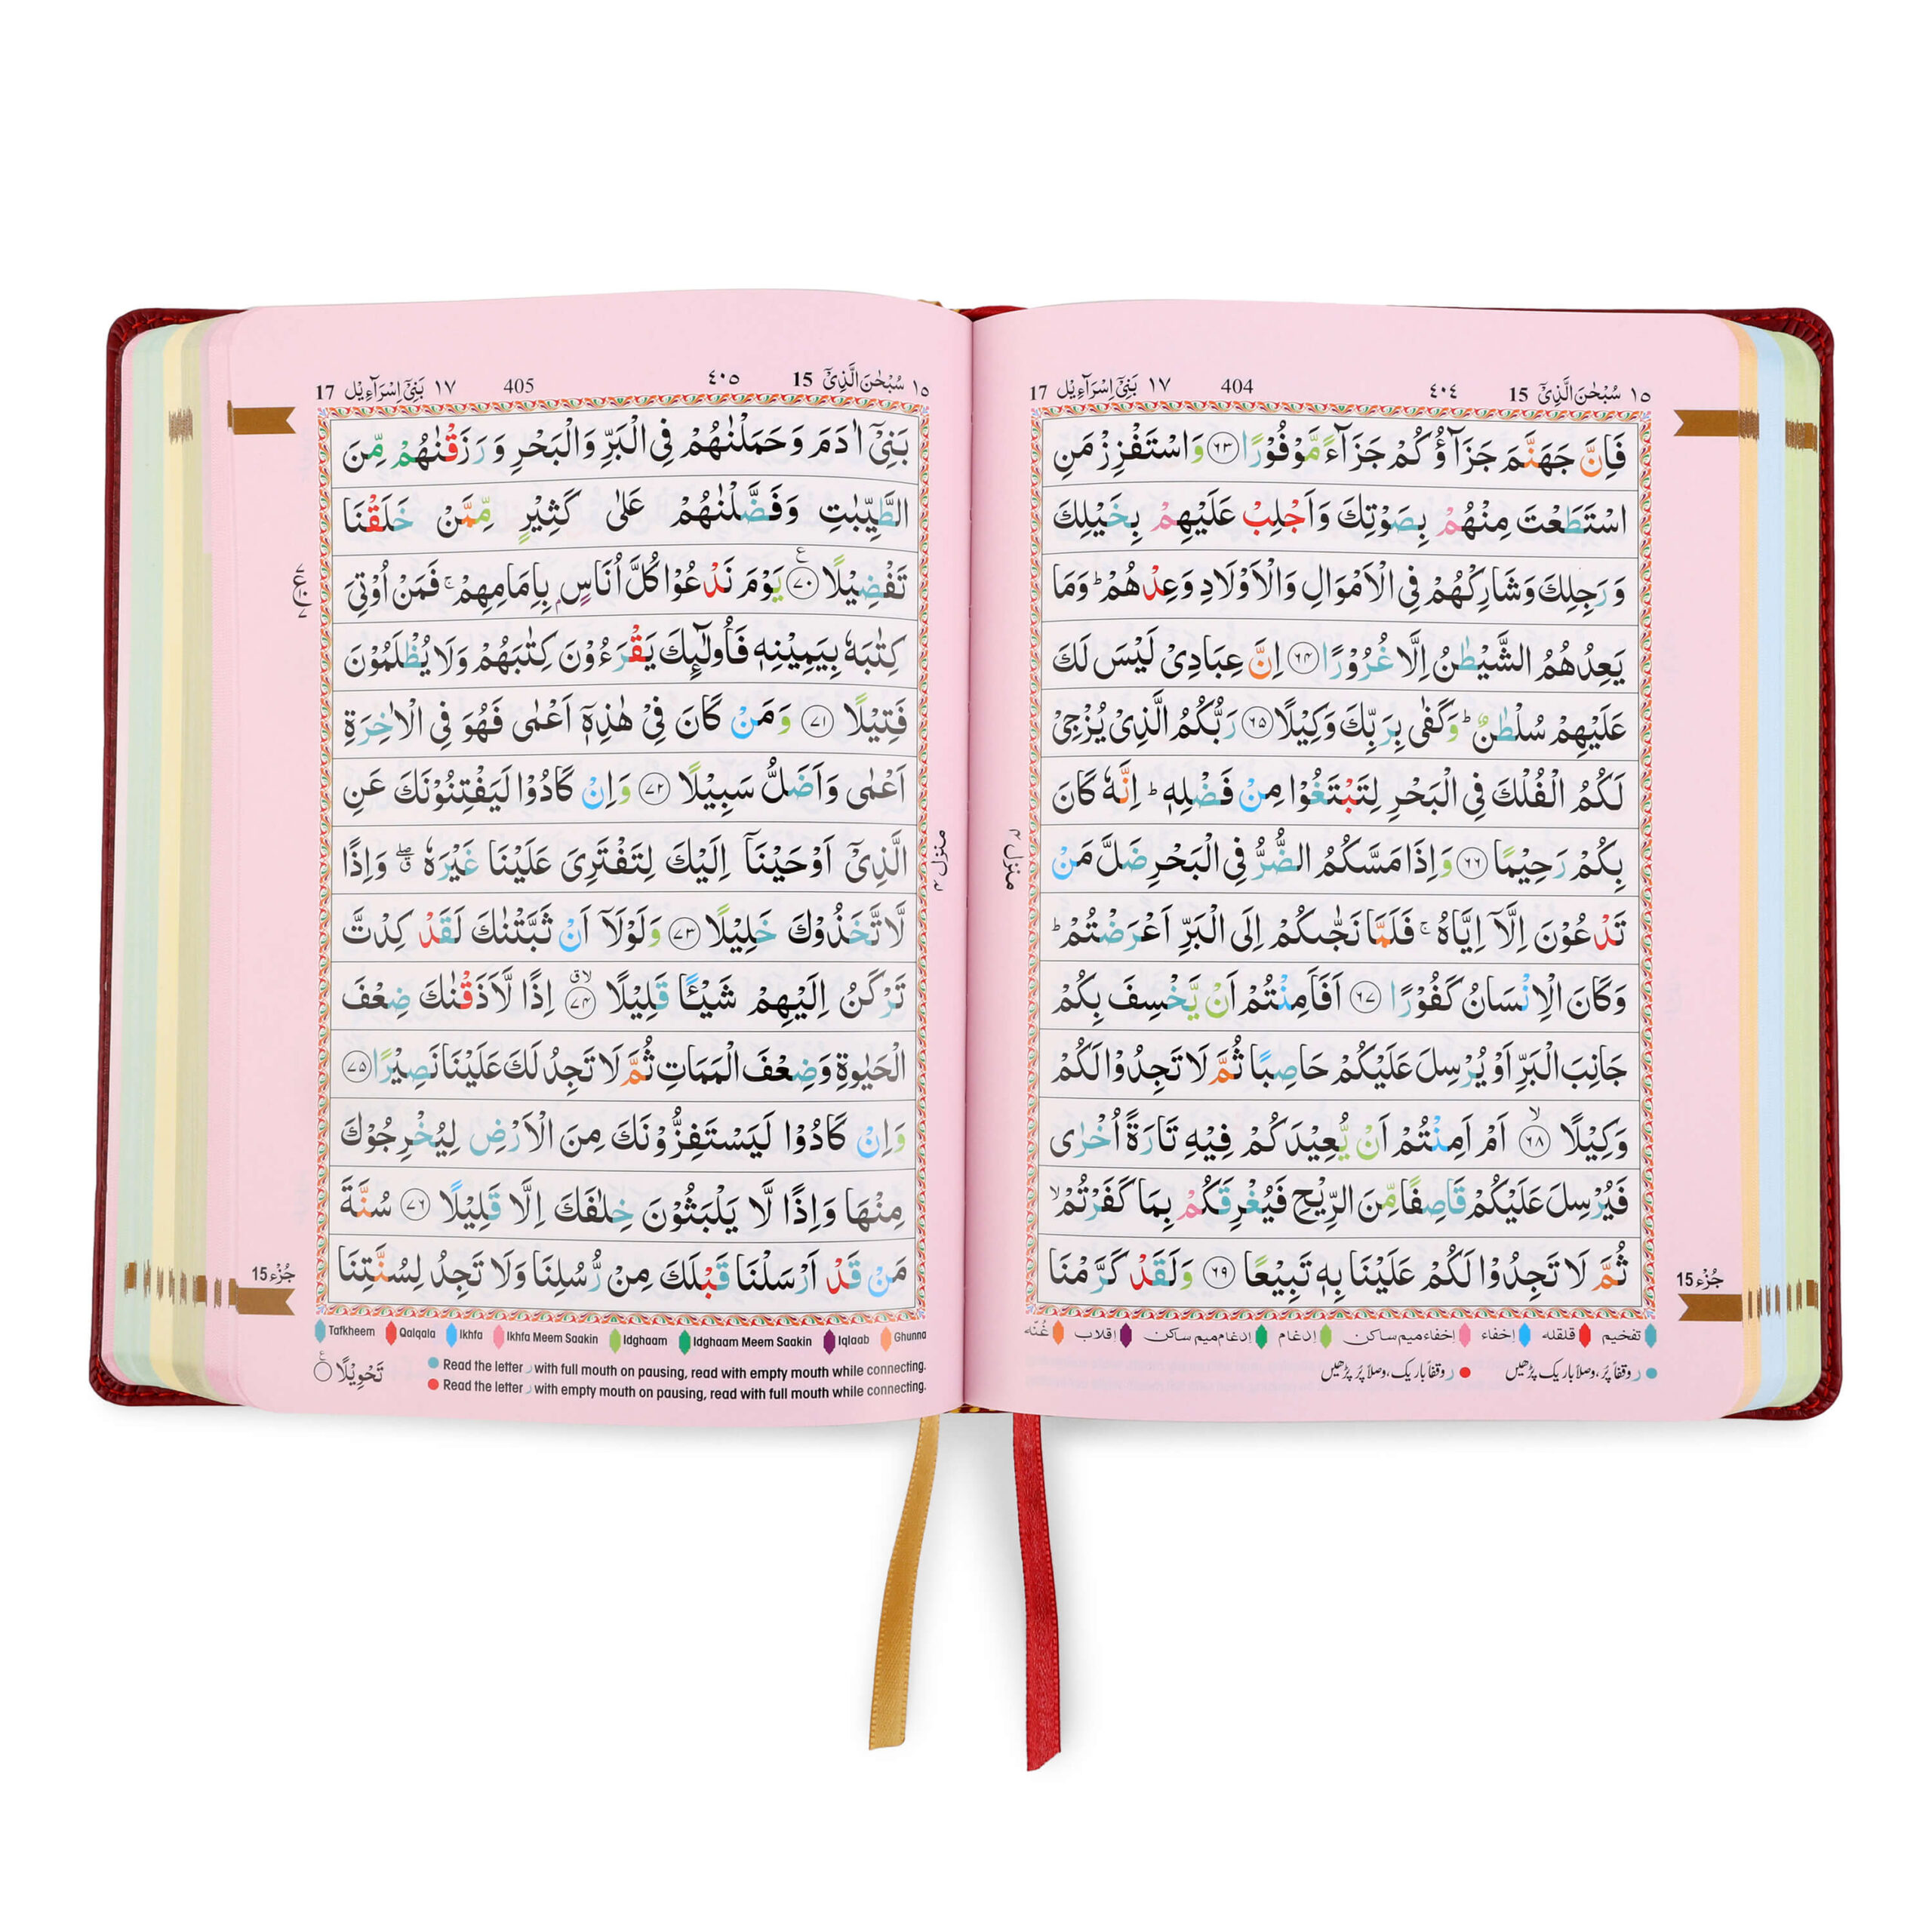 ١٥ سُبْحٰنَ الَّذِیْۤ 15 ٤٠٤ 404 ١٧ بَنِیْۤ اِسْرَآءِیْل 17
فَاِنَّ جَهَنَّمَ جَزَآؤُكُمْ جَزَآءً مَّوْفُوْرًا ۶۳ وَاسْتَفْزِزْ مَنِ
اسْتَطَعْتَ مِنْهُمْ بِصَوْتِكَ وَاَجْلِبْ عَلَیْهِمْ بِخَیْلِكَ
وَرَجِلِكَ وَشَارِكْهُمْ فِی الْاَمْوَالِ وَالْاَوْلَادِ وَعِدْهُمْ ؕ وَمَا
یَعِدُهُمُ الشَّیْطٰنُ اِلَّا غُرُوْرًا ۶۴ اِنَّ عِبَادِیْ لَیْسَ لَكَ
عَلَیْهِمْ سُلْطٰنٌ ؕ وَكَفٰی بِرَبِّكَ وَكِیْلًا ۶۵ رَبُّكُمُ الَّذِیْ یُزْجِیْ
لَكُمُ الْفُلْكَ فِی الْبَحْرِ لِتَبْتَغُوْا مِنْ فَضْلِهٖ ؕ اِنَّهٗ كَانَ
بِكُمْ رَحِیْمًا ۶۶ وَاِذَا مَسَّكُمُ الضُّرُّ فِی الْبَحْرِ ضَلَّ مَنْ
تَدْعُوْنَ اِلَّاۤ اِیَّاهُ ۚ فَلَمَّا نَجّٰىكُمْ اِلَی الْبَرِّ اَعْرَضْتُمْ ؕ
وَكَانَ الْاِنْسَانُ كَفُوْرًا ۶۷ اَفَاَمِنْتُمْ اَنْ یَّخْسِفَ بِكُمْ
جَانِبَ الْبَرِّ اَوْ یُرْسِلَ عَلَیْكُمْ حَاصِبًا ثُمَّ لَا تَجِدُوْا لَكُمْ
وَكِیْلًا ۙ ۶۸ اَمْ اَمِنْتُمْ اَنْ یُّعِیْدَكُمْ فِیْهِ تَارَةً اُخْرٰی
فَیُرْسِلَ عَلَیْكُمْ قَاصِفًا مِّنَ الرِّیْحِ فَیُغْرِقَكُمْ بِمَا كَفَرْتُمْ ۙ
ثُمَّ لَا تَجِدُوْا لَكُمْ عَلَیْنَا بِهٖ تَبِیْعًا ۶۹ وَلَقَدْ كَرَّمْنَا
منزل ۴
جُزء 15
تفخیم قلقله إخفاء إخفاءمیم ساکن إدغام إدغام میم ساکن إقلاب غُنّه
ر وقفاً پُر، وصلاً باریک پڑھیں ر وقفاً باریک، وصلاً پُر پڑھیں
١٥ سُبْحٰنَ الَّذِیْۤ 15 ٤٠٥ 405 ١٧ بَنِیْۤ اِسْرَآءِیْل 17
بَنِیْۤ اٰدَمَ وَحَمَلْنٰهُمْ فِی الْبَرِّ وَالْبَحْرِ وَرَزَقْنٰهُمْ مِّنَ
الطَّیِّبٰتِ وَفَضَّلْنٰهُمْ عَلٰی كَثِیْرٍ مِّمَّنْ خَلَقْنَا
تَفْضِیْلًا ۷۰ یَوْمَ نَدْعُوْا كُلَّ اُنَاسٍۭ بِاِمَامِهِمْ ۚ فَمَنْ اُوْتِیَ
كِتٰبَهٗ بِیَمِیْنِهٖ فَاُولٰٓئِكَ یَقْرَءُوْنَ كِتٰبَهُمْ وَلَا یُظْلَمُوْنَ
فَتِیْلًا ۷۱ وَمَنْ كَانَ فِیْ هٰذِهٖۤ اَعْمٰی فَهُوَ فِی الْاٰخِرَةِ
اَعْمٰی وَاَضَلُّ سَبِیْلًا ۷۲ وَاِنْ كَادُوْا لَیَفْتِنُوْنَكَ عَنِ
الَّذِیْۤ اَوْحَیْنَاۤ اِلَیْكَ لِتَفْتَرِیَ عَلَیْنَا غَیْرَهٗ ۖۗ وَاِذًا
لَّاتَّخَذُوْكَ خَلِیْلًا ۷۳ وَلَوْلَاۤ اَنْ ثَبَّتْنٰكَ لَقَدْ كِدْتَّ
تَرْكَنُ اِلَیْهِمْ شَیْـًٔا قَلِیْلًا ۷۴ اِذًا لَّاَذَقْنٰكَ ضِعْفَ
الْحَیٰوةِ وَضِعْفَ الْمَمَاتِ ثُمَّ لَا تَجِدُ لَكَ عَلَیْنَا نَصِیْرًا ۷۵
وَاِنْ كَادُوْا لَیَسْتَفِزُّوْنَكَ مِنَ الْاَرْضِ لِیُخْرِجُوْكَ
مِنْهَا وَاِذًا لَّا یَلْبَثُوْنَ خِلٰفَكَ اِلَّا قَلِیْلًا ۷۶ سُنَّةَ
مَنْ قَدْ اَرْسَلْنَا قَبْلَكَ مِنْ رُّسُلِنَا وَلَا تَجِدُ لِسُنَّتِنَا
منزل ۴
جُزء 15
Tafkheem Qalqala Ikhfa Ikhfa Meem Saakin Idghaam Idghaam Meem Saakin Iqlaab Ghunna
Read the letter ر with full mouth on pausing, read with empty mouth while connecting.
Read the letter ر with empty mouth on pausing, read with full mouth while connecting.
تَحْوِیْلًا